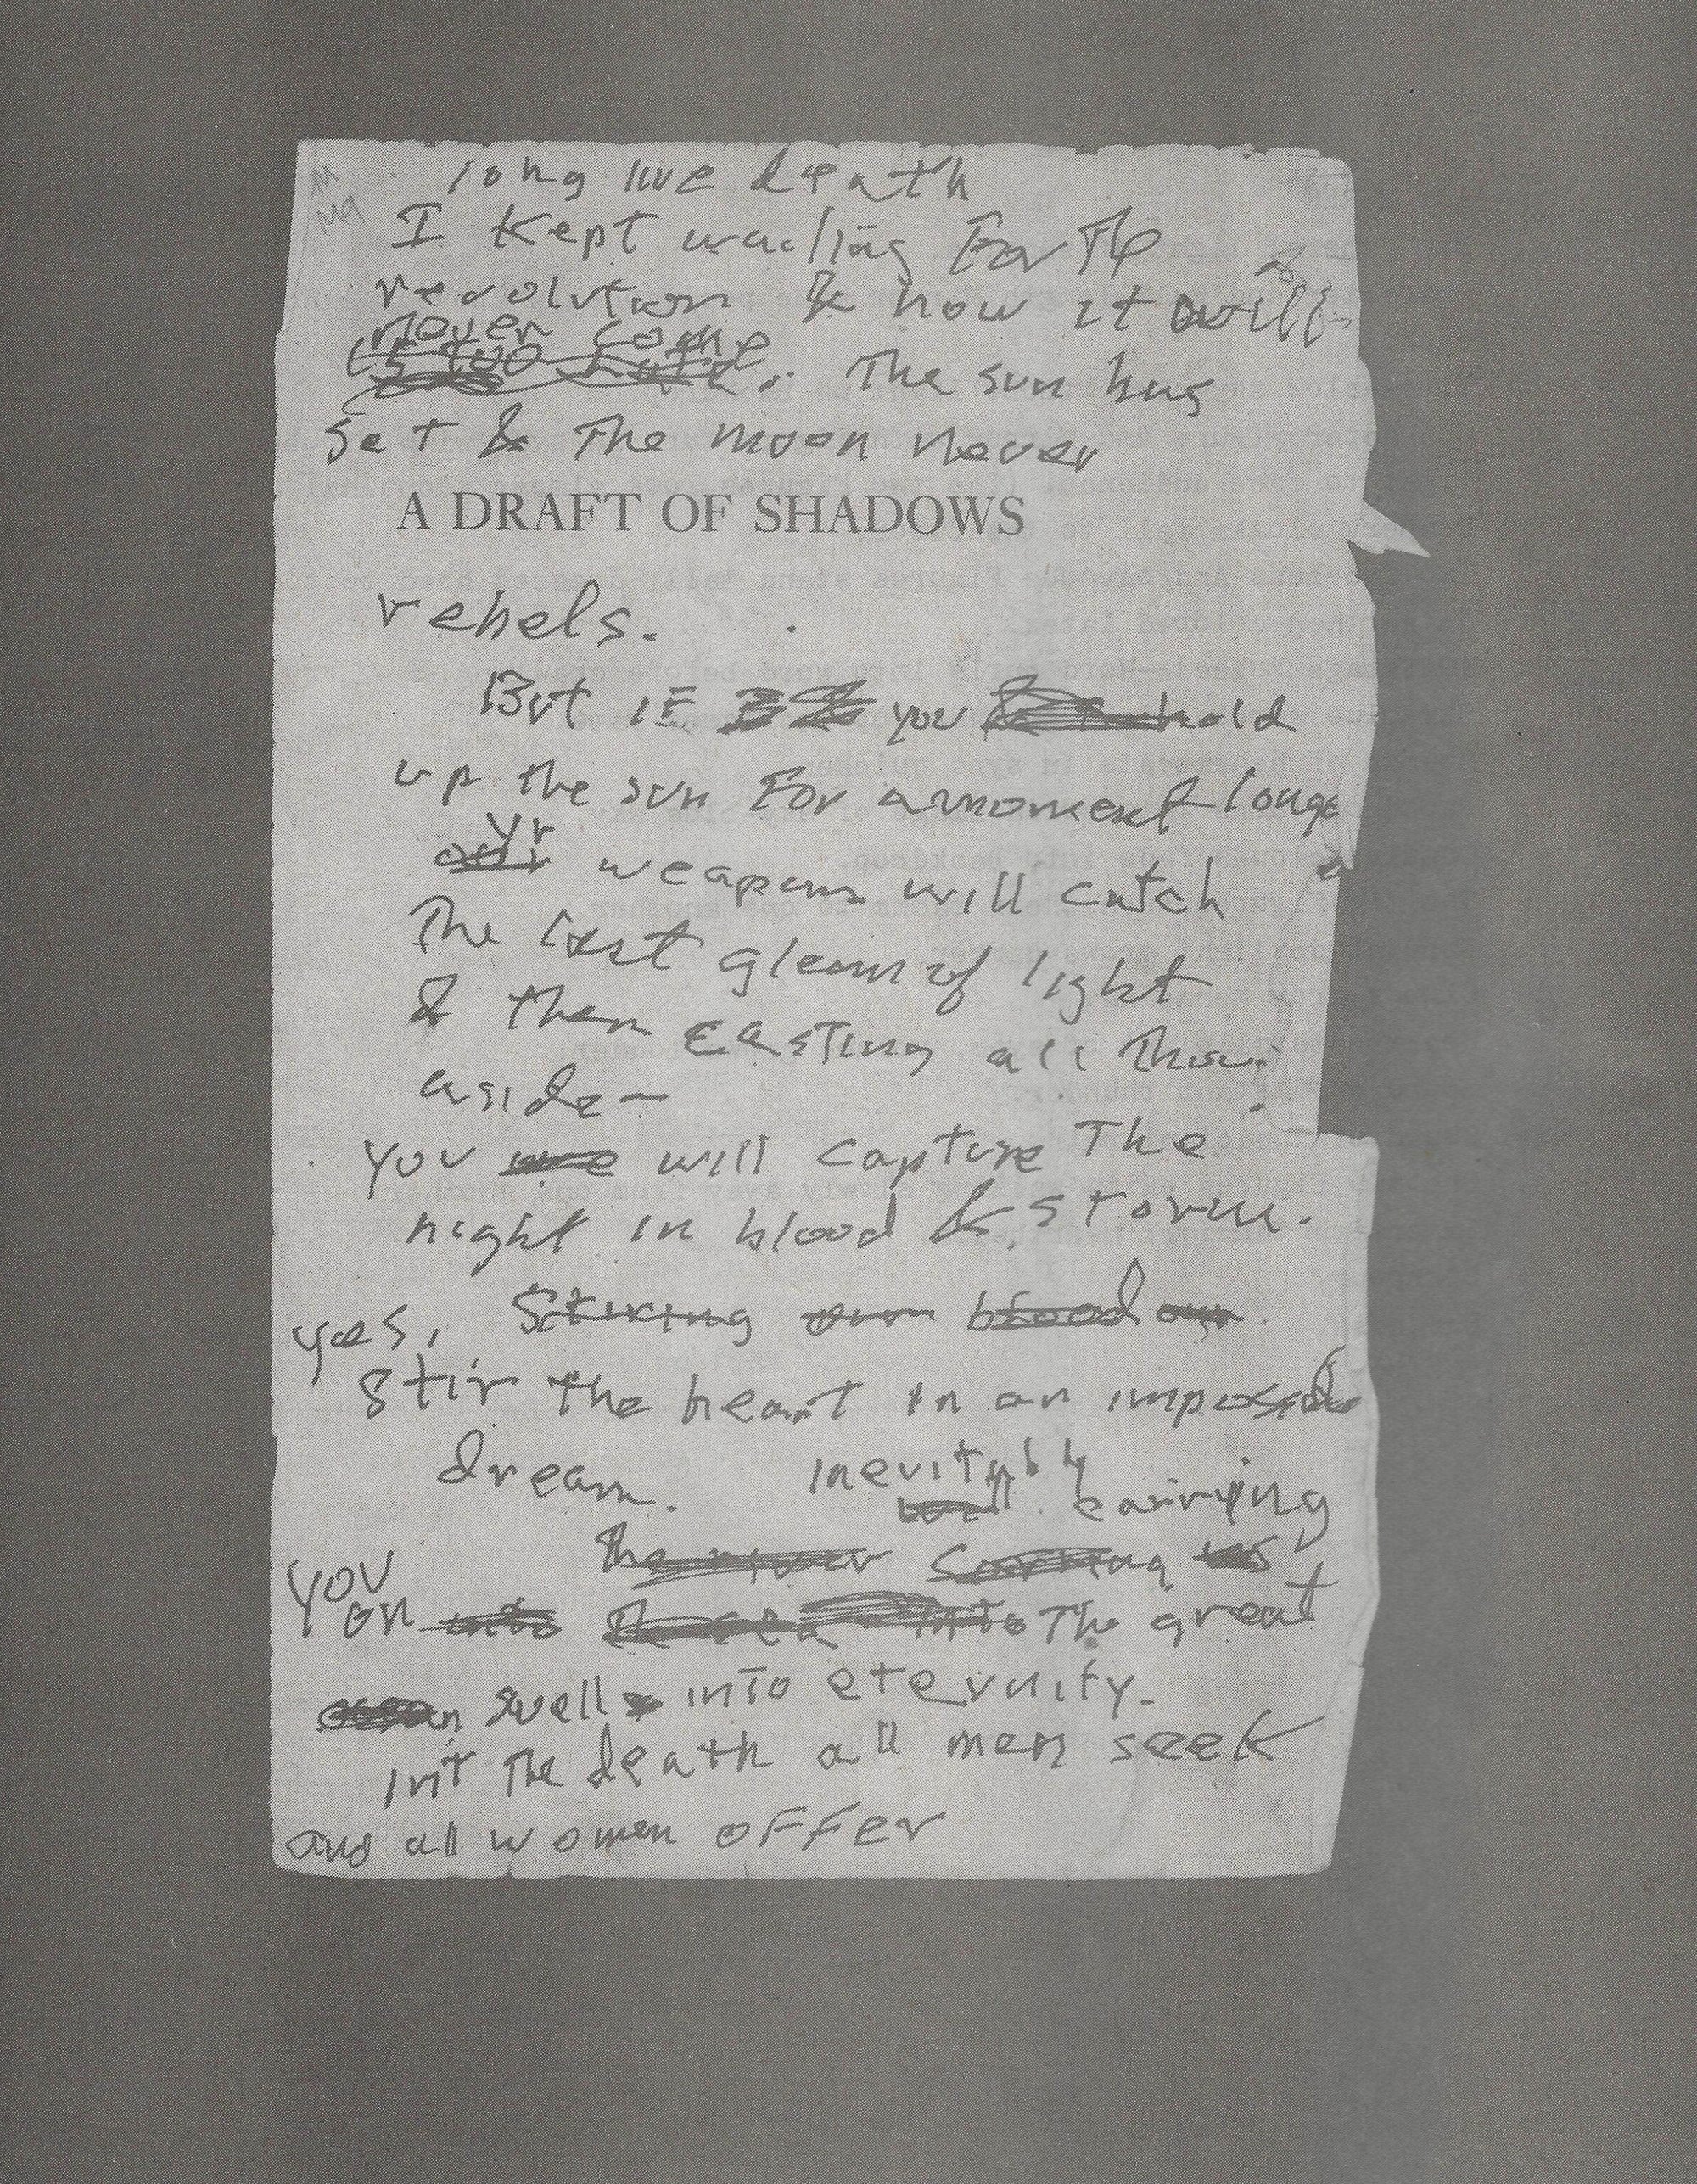 long live death
I kept waiting For The
revolution & now it will
never come
is too late. The sun has
set & The moon never
A DRAFT OF SHADOWS
rebels.
But iF you hold
up the sun For a moment longe
yr
our weapons will catch
The last gleam of light
& then casting all
aside—
you we will capture The
night in blood & storm.
yes, Stiring our blood
Stir the heart in an impossible
dream. inevitably
will carrying
The river carrying us
you
on into into The great
swell into eternity.
into The death all men seek
and all women offer